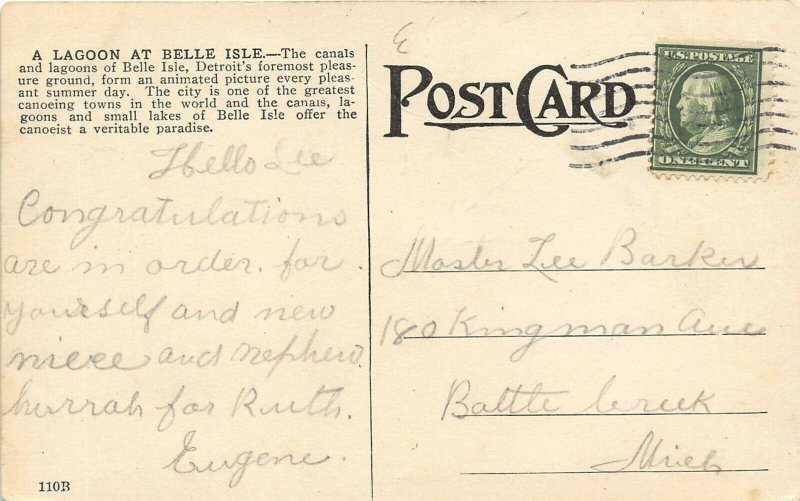 A LAGOON AT BELLE ISLE.—The canals
and lagoons of Belle Isle, Detroit's foremost pleas-
ure ground, form an animated picture every pleas-
ant summer day. The city is one of the greatest
canoeing towns in the world and the canals, la-
goons and small lakes of Belle Isle offer the
canoeist a veritable paradise.
Hello Lee
Congratulations
are in order. for.
yourself and new
niece and nephew.
hurrah for Ruth.
Eugene.
110B
POST CARD
U.S. POSTAGE
ONE CENT
Master Lee Barker
180 Kingman Ave
Battle Creek
Mich